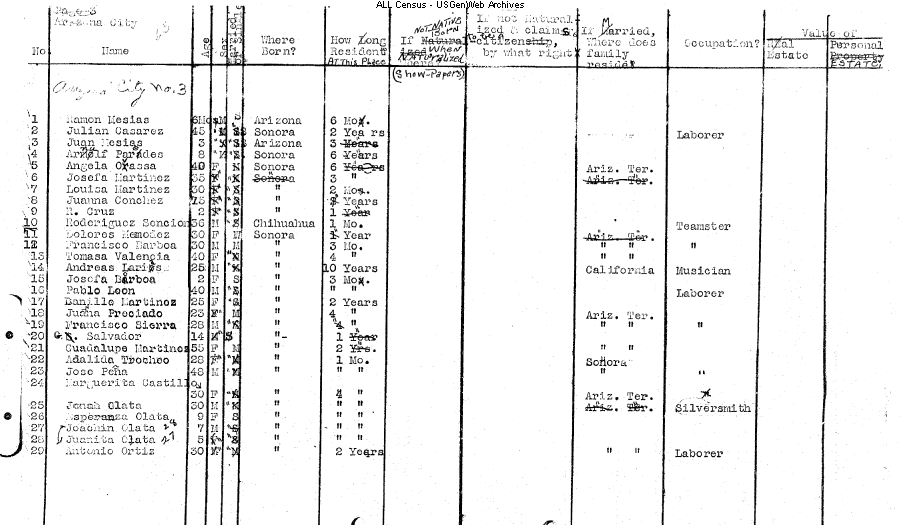 ALL Census - USGenWeb Archives
Page 3
Arizona City
No. Name Age Sex Married or Single Where Born? How Long Resident At This Place If Naturalized NOT NATIVE BORN When NATURALIZED (Show-Papers) If not Natural ized & claims citizenship, by what right If Married, Where does family reside? Occupation? Value of Real Estate Personal Property ESTATE.
Arizona City No. 3
1 Ramon Mesias 6Mos M S Arizona 6 Mos.
2 Julian Casarez 45 M S Sonora 2 Years Laborer
3 Juan Mesias 3 M S Arizona 3 Years
4 8 Sonora 6 Years
5 Angela 40 F Sonora 6 Years Ariz. Ter.
6 Josefa Martinez 35 F Sonora 3 " Ariz. Ter.
7 Louisa Martinez 30 " 2 Mos.
8 Juanna Conchez 15 " Years
9 R. Cruz 2 " 1 Year
10 Roderiguez Soncion 36 M S Chihuahua 1 Mo. Teamster
11 Dolores Hemodez 30 F M Sonora 1 Year Ariz. Ter.
12 Francisco Barboa 30 M M " 3 Mo. " " "
13 Tomasa Valencia 40 F " 4 " " "
14 Andreas 25 M " 10 Years California Musician
15 Josefa Barboa 2 F S " 3 Mos.
16 Pablo Leon 40 M S " " " Laborer
17 Banillo Martinez 25 F S " 2 Years
18 Juana Preciado 23 M " 4 " Ariz. Ter.
19 Francisco Sierra 28 M " 4 " " " "
20 G. Salvador 14 S " - 1 Year
21 Guadalupe Martinez 55 F M " 2 Yrs. " "
22 Adalida Trocheo 28 F " 1 Mo. Sonora
23 Jose Peña 48 M " " " " "
24 Marguerita Castillo
30 F " 4 " Ariz. Ter.
25 Jonah Olata 30 M " " " Ariz. Ter. Silversmith
26 Esperanza Olata 9 F S " " "
27 Joachin Olata 28 7 M S " " "
28 Juanita Olata 27 5 S " " "
29 Antonio Ortiz 30 M " 2 Years " " Laborer